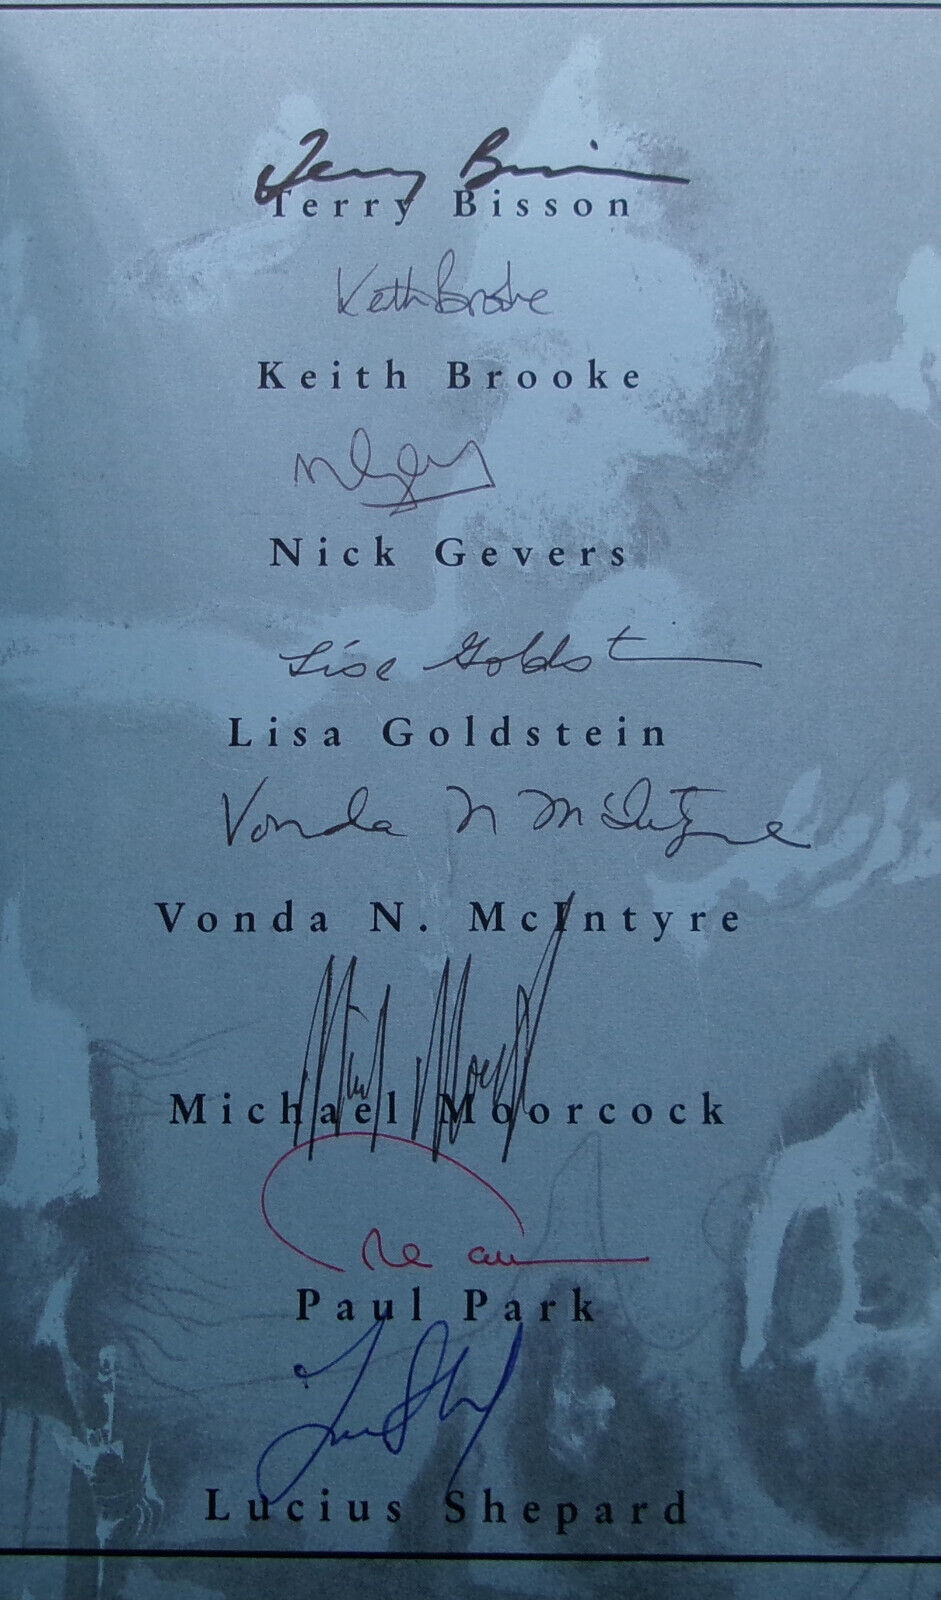 Terry Bisson
Terry Bisson
Keith Brooke
Keith Brooke
Nick Gevers
Lisa Goldstein
Lisa Goldstein
Vonda N McIntyre
Vonda N. McIntyre
Michael Moorcock
Paul Park
Lucius Shepard